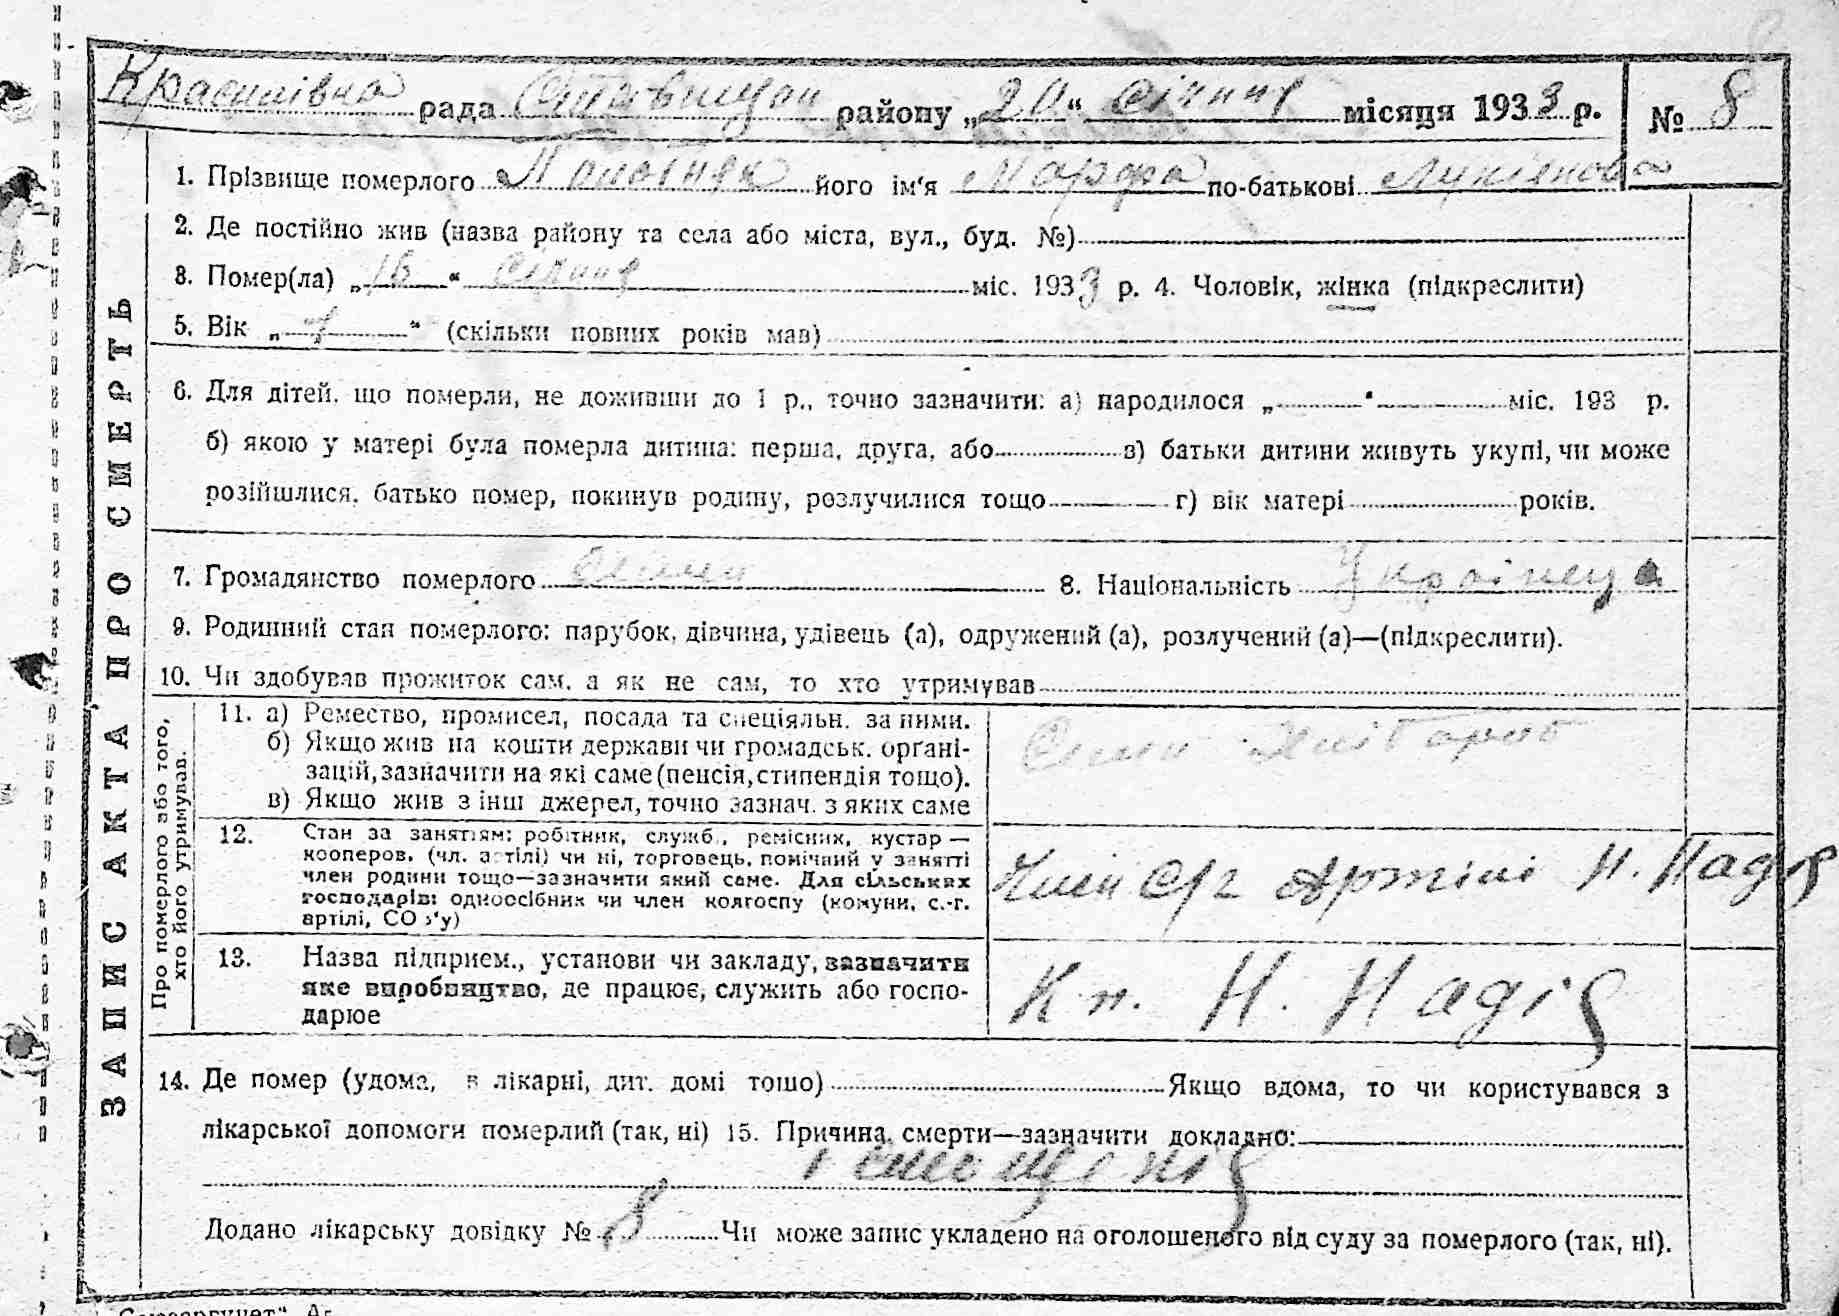 Красилівка рада Ставищан району „20“ Січня місяця 1933 р. № 8
ЗАПИС АКТА ПРО СМЕРТЬ
1. Прізвище померлого його ім'я Марфа по-батькові Лукіянова
2. Де постійно жив (назва району та села або міста, вул., буд. №)
3. Помер(ла) „16“ Січня міс. 1933 р. 4. Чоловік, жінка (підкреслити)
5. Вік „7“ (скільки повних років мав)
6. Для дітей, що померли, не доживши до 1 р., точно зазначити: а) народилося „ “ міс. 193 р.
б) якою у матері була померла дитина: перша, друга, або в) батьки дитини живуть укупі, чи може
розійшлися, батько помер, покинув родину, розлучилися тощо г) вік матері років.
7. Громадянство померлого 8. Національність Українец
9. Родинний стан померлого: парубок, дівчина, удівець (а), одружений (а), розлучений (а)—(підкреслити).
10. Чи здобував прожиток сам, а як не сам, то хто утримував
Про померлого або того,
хто його утримував.
11. а) Ремество, промисел, посада та спеціяльн. за ними.
б) Якщо жив на кошти держави чи громадськ. орґані-
зацій, зазначити на які саме (пенсія, стипендія тощо).
в) Якщо жив з інш джерел, точно зазнач. з яких саме
Хлібороб
12. Стан за заняттям: робітник, службі., ремісник, кустар —
кооперов. (чл. артілі) чи ні, торговець, помічний у занятті
член родини тощо—зазначити який саме. Для сільських
господарів: одноосібник чи член колгоспу (комуни, с.-г.
артілі, СОЗ'у)
Член С/г Артілі Н. Надія
13. Назва підприєм., установи чи закладу, зазначити
яке виробництво, де працює, служить або госпо-
дарює
К п. Н. Надія
14. Де помер (удома, в лікарні, дит. домі тощо) Якщо вдома, то чи користувався з
лікарської допомоги померлий (так, ні) 15. Причина смерти—зазначити докладно:
Додано лікарську довідку № 8 Чи може запис укладено на оголошеного від суду за померлого (так, ні).